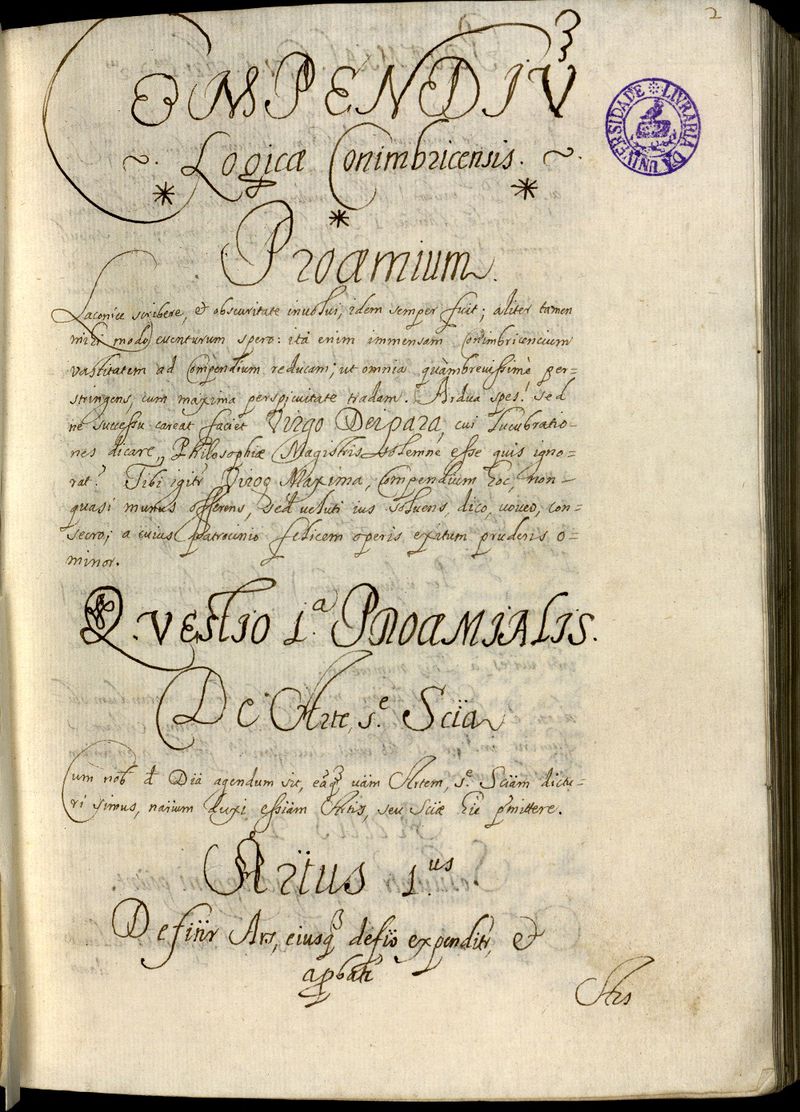 2
COMPENDIVꝫ
Logicæ Conimbricensis.
LIVRARIA DA UNIVERSIDADE
Proæmium.
Laconice scribere, & obscuritate involui, idem semper fuit; aliter tamen
mihi modo euenturum spero: ità enim immensam Conimbricencium
vastitatem ad Compendium reducam; ut omnia quàm breuissimè per=
stringens, cum maxima perspicuitate tradam. Ardua spes! sed
ne successu careat faciet Virgo Deipara, cui lucubratio-
nes dicare, Philosophiæ Magistris solemne esse quis igno-
rat? Tibi igitr Virgo Maxima, Compendium hoc, non-
quasi munus offerens, sed veluti ius soluens, dico, voveo, con=
secro; a cuius patrocinio felicem operis exitum prudens o-
minor.
QVESTIO 1.ª PROÆMIALIS.
De Arte, sᵉ Sciã
Cum nob̃ đ Diã agendum sit, eãqꝫ uãm Artem, sᵉ Sciãm dictu-
ri simus, duxi essiãm Artis, seu Sciæ hic p̃mittere.
Artus 1.us
Definir Ars, eiusqꝫ defio expenditr, &
aprobatr
Ars